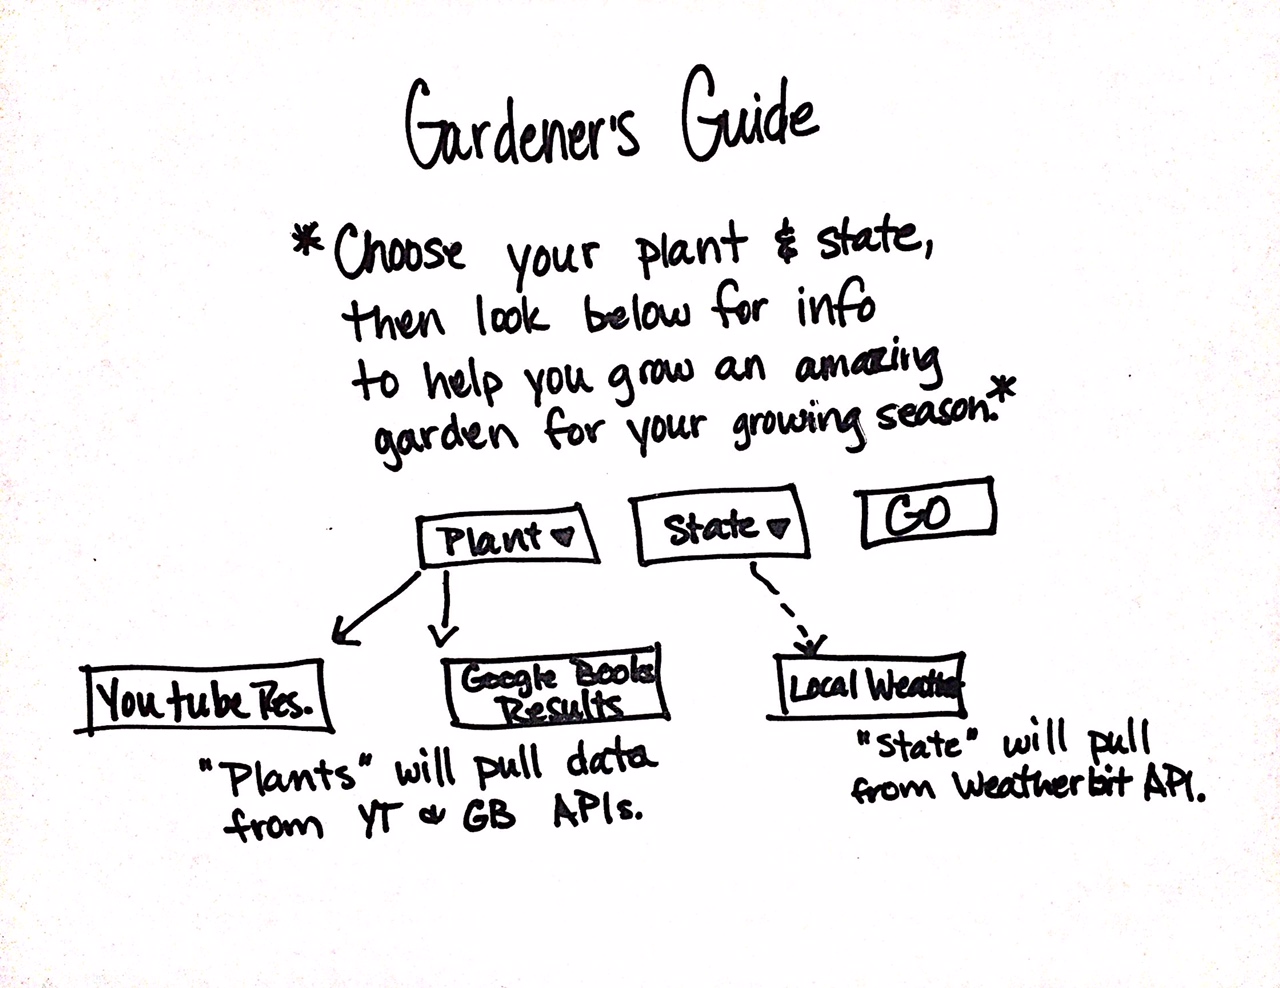 Gardener's Guide
*Choose your plant & state,
then look below for info
to help you grow an amazing
garden for your growing season.*
Plant
State
GO
Youtube Res.
Google Books
Results
Local Weather
"Plants" will pull data
from YT & GB APIs.
"State" will pull
from Weatherbit API.